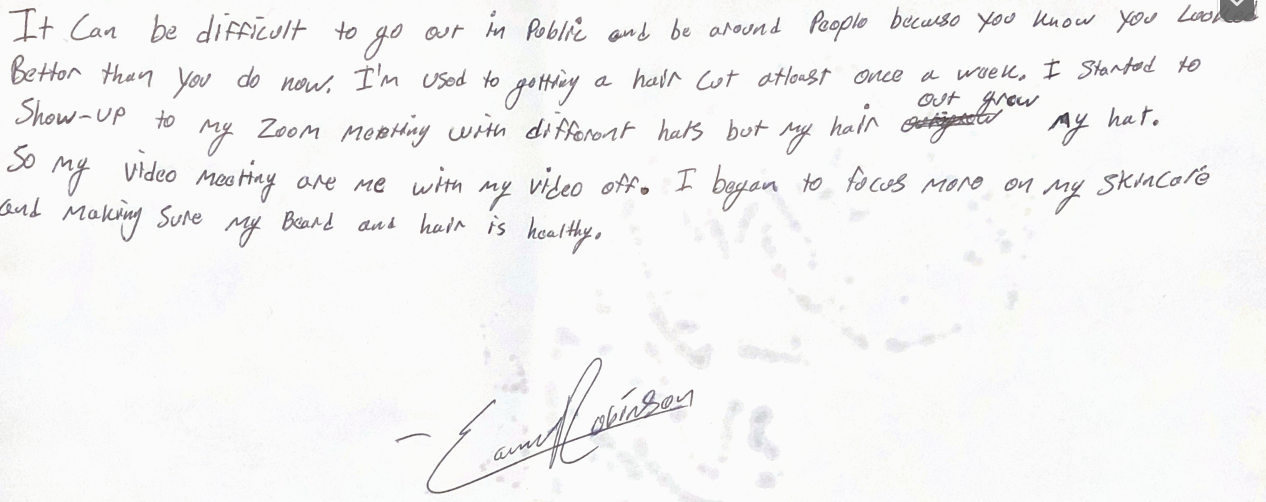 It Can be difficult to go out in Public and be around People because you know you Looked
Better than you do now. I'm used to getting a hair cut atleast once a week. I started to
Show-up to my Zoom meeting with different hats but my hair out grew my hat.
So my video meeting are me with my video off. I began to focus more on my skincare
and making sure my Beard and hair is healthy.
- Robinson